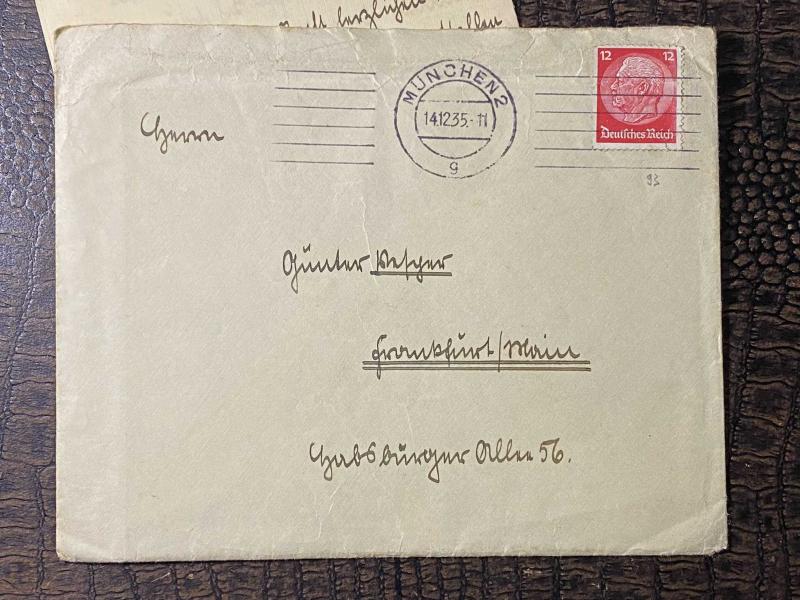 herzlichen
MÜNCHEN 2
14.12.35.-11
g
12 12
Deutsches Reich
93
Herrn
Günter Vesper
Frankfurt/Main
Habsburger Allee 56.